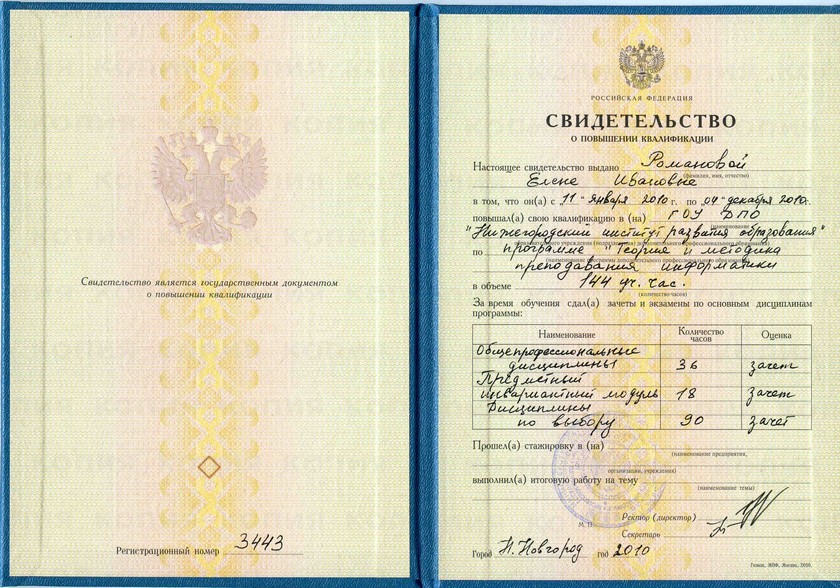 Свидетельство является государственным документом
о повышении квалификации
Регистрационный номер 3443
РОССИЙСКАЯ ФЕДЕРАЦИЯ
СВИДЕТЕЛЬСТВО
О ПОВЫШЕНИИ КВАЛИФИКАЦИИ
Настоящее свидетельство выдано Романовой
(фамилия, имя, отчество)
Елене Ивановне
в том, что он(а) с 11 " января 2010 г. по 04 " декабря 2010 г.
повышал(а) свою квалификацию в (на) ГОУ ДПО
"Нижегородский институт развития образования"
по программе "Теория и методика
преподавания информатики
в объеме 144 уч. час.
(количество часов)
За время обучения сдал(а) зачеты и экзамены по основным дисциплинам
программы:
Наименование Количество часов Оценка
Общепрофессиональные
дисциплины 36 зачет
Предметный
инвариантный модуль 18 зачет
Дисциплины
по выбору 90 зачет
Прошел(а) стажировку в (на)
(наименование предприятия,
организации, учреждения)
выполнил(а) итоговую работу на тему
(наименование темы)
Ректор (директор)
М. П.
Секретарь
Город Н.Новгород год 2010
Гознак, МПФ, Москва, 2010.